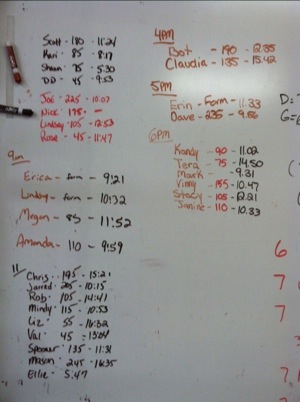 Scott - 180 - 11:24
Kari - 85 - 8:17
Shawn - 75 - 5:30
DD - 45 - 9:53
Joe - 225 - 10:07
Nick - 195 -
Lindsay - 105 - 12:53
Rose - 45 - 11:47
9am
Erica - form - 9:21
Lindsay - form - 10:32
Megan - 85 - 11:52
Amanda - 110 - 9:59
11
Chris - 195 - 15:21
Jarred - 205 - 10:15
Rob - 105 - 14:41
Mindy - 115 - 10:53
Liz - 55 - 16:32
Val - 45 = 13:04
Spencer - 135 - 11:31
Mason - 245 - 16:35
Ellie - 5:47
4PM
Bot - 190 - 12:35
Claudia - 135 - 15:42
5PM
Erin - Form - 11:33
Dave - 235 - 9:56
6PM
Kandy - 90 - 11:02
Tera - 75 - 14:50
Mark - - 9:31
Vinny - 155 - 10:47
Stacy - 105 - 12:21
Janine - 110 - 10:33
D:
G=
6
7
7